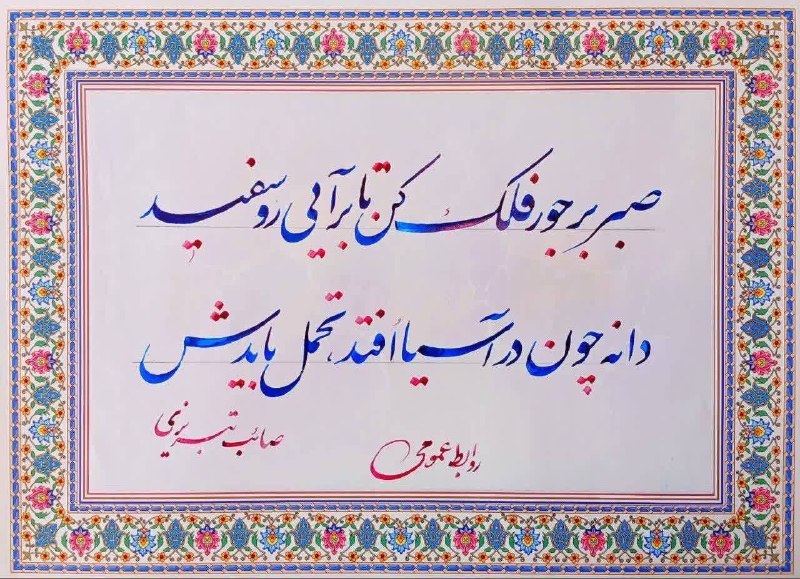 صبر بر جور فلک کن تا برآیی رو سفید
دانه چون در آسیا اُفتد، تحمل بایدش
صائب تبریزی
روابط عمومی